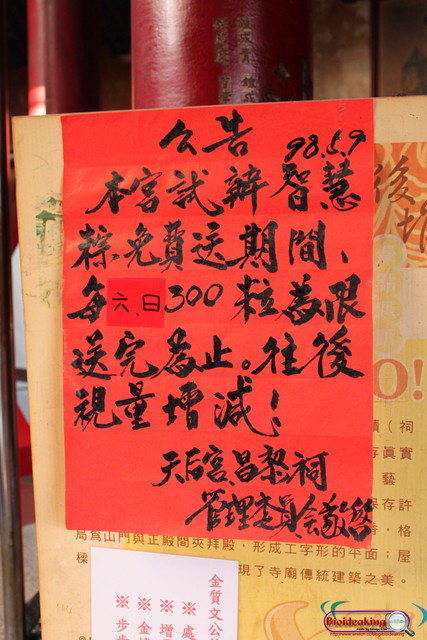 公告 98.5.9
本宮試辦智慧
粽免費送期間、
每六.日300粒為限
送完為止。往後
視量增減！
天后宮.昌黎祠
管理委員會敬啓
後堆
O!
蹟(祠
存真實
藝
保存許
香，格
局為山門與正殿間夾拜殿，形成工字形的平面；屋
樑
現了寺廟傳統建築之美。
金質文公
※處
※增
※金榜
※步步
Bioideaking